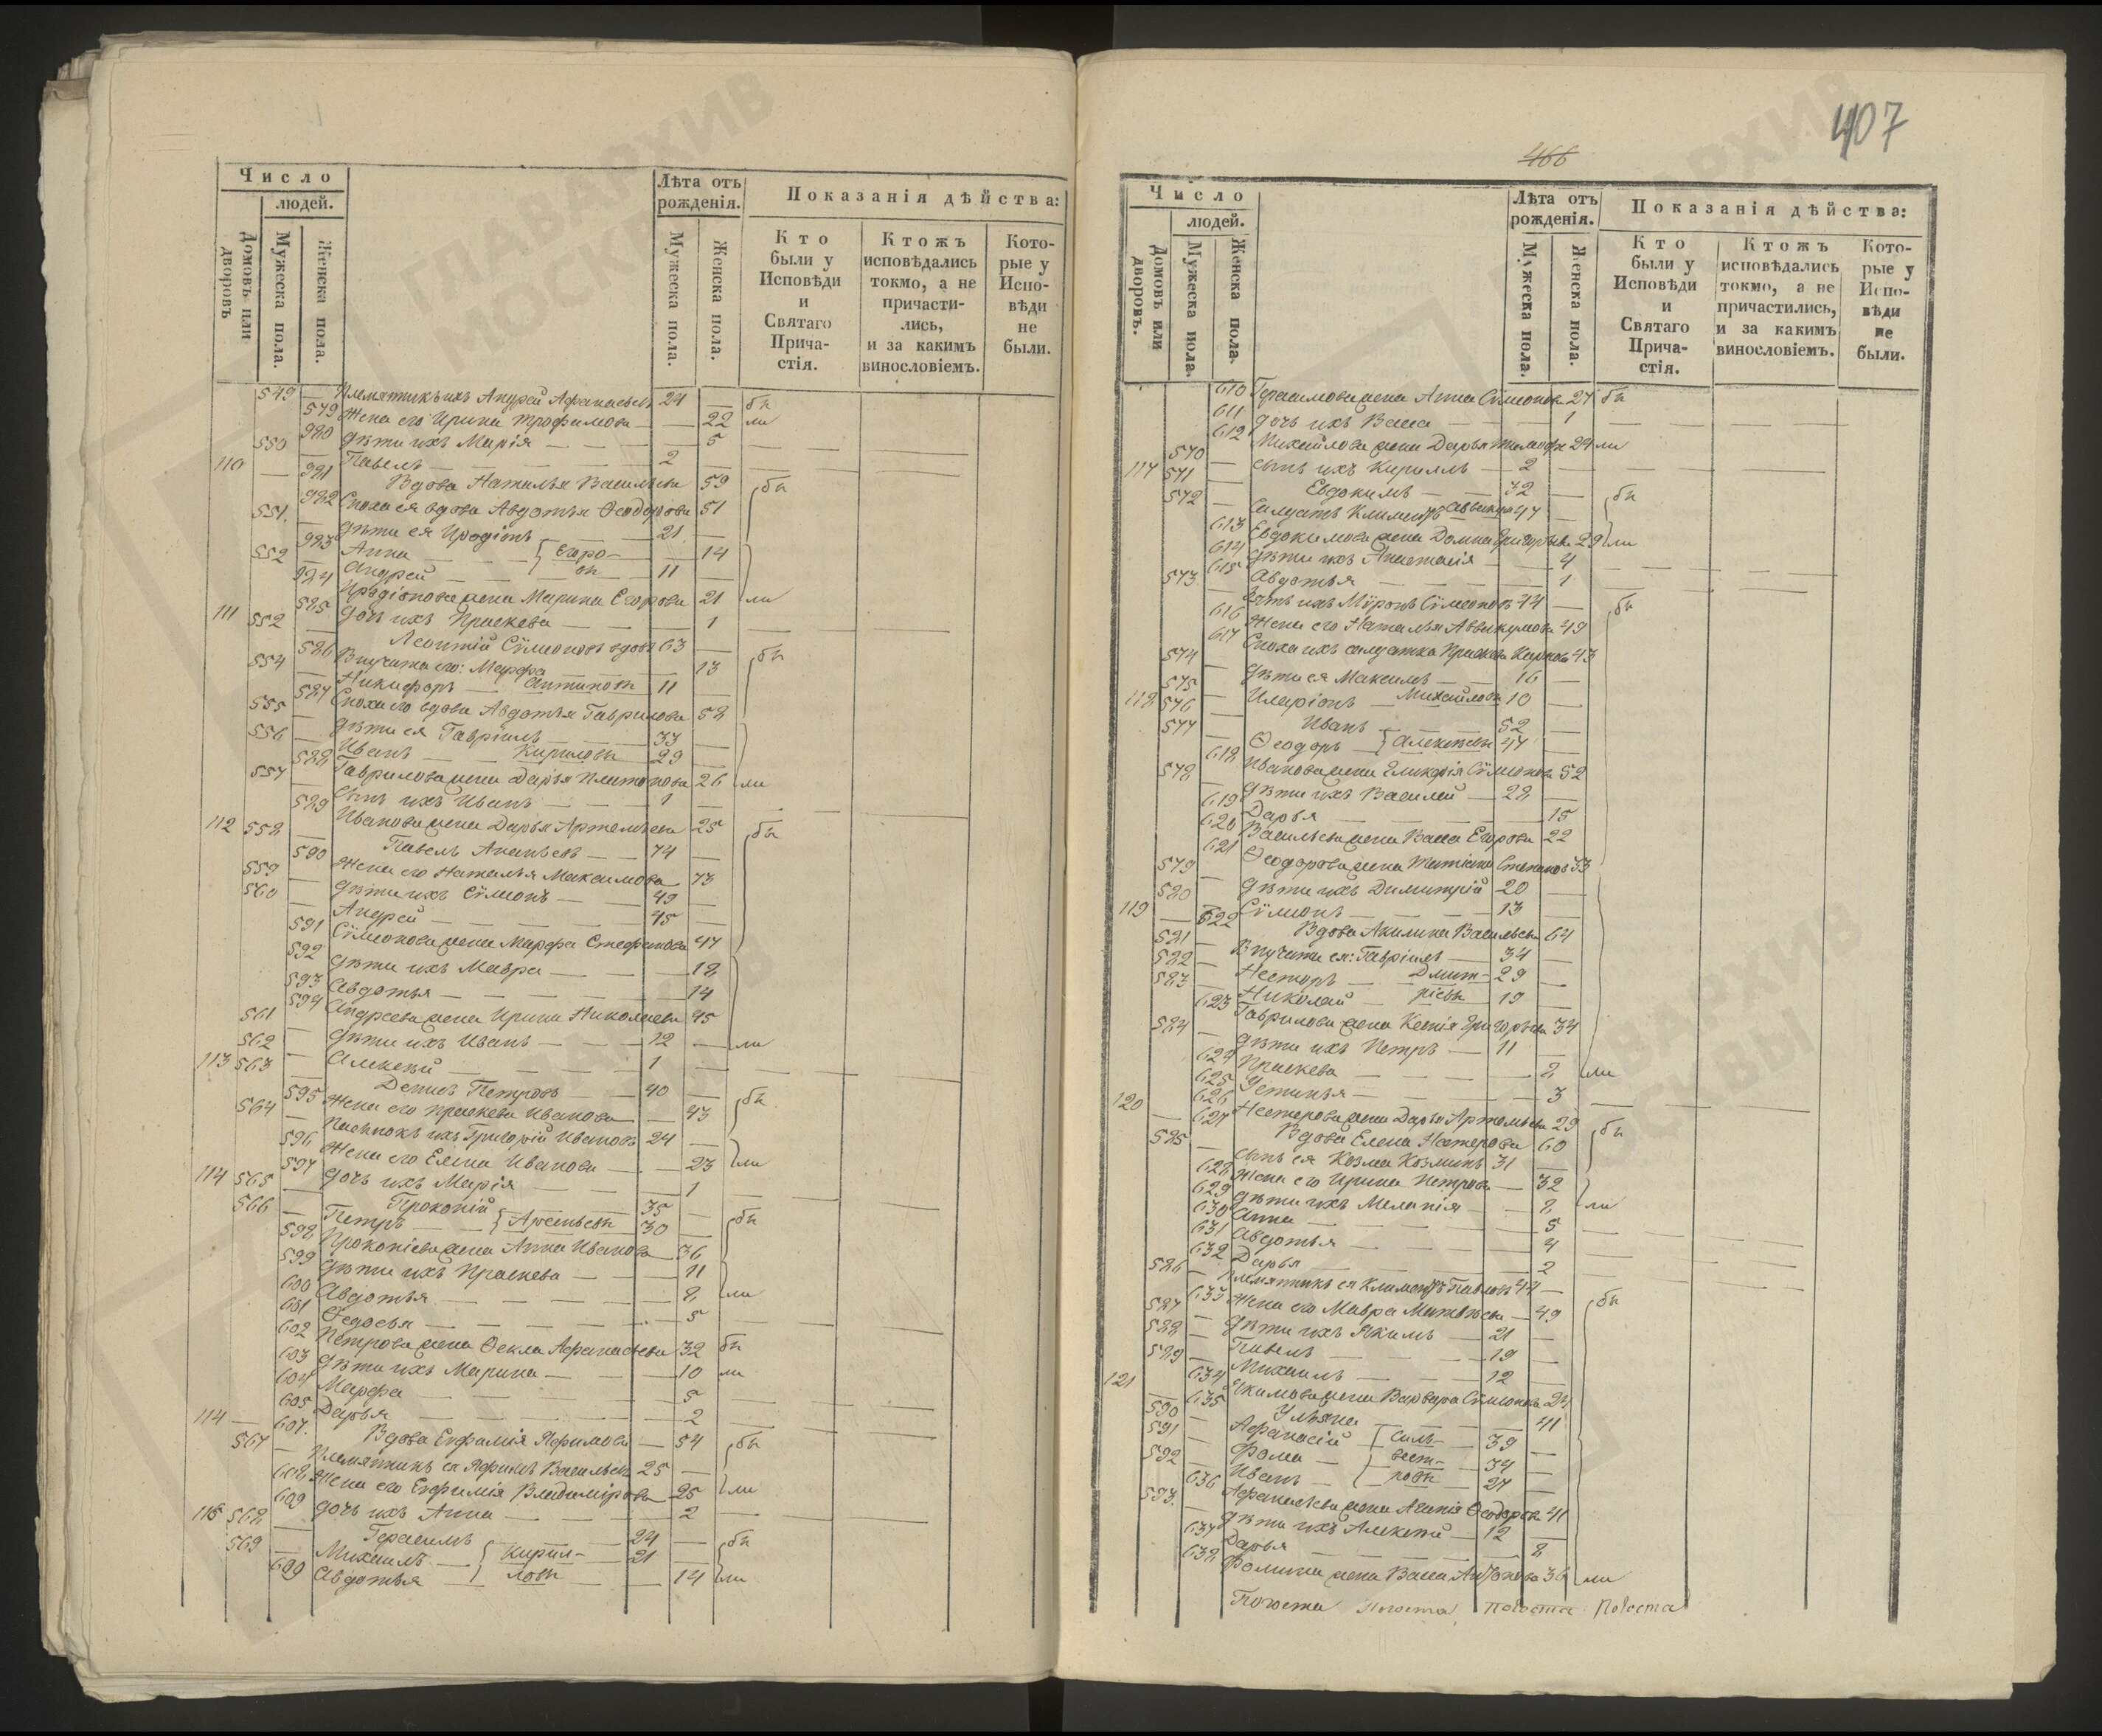 Число
людей.
Домовъ или дворовъ
Мужеска пола.
Женска пола.
Лѣта отъ рожденія.
Мужеска пола.
Женска пола.
Показанія дѣйства:
Кто были у Исповѣди и Святаго Прича-стія.
Ктожъ исповѣдались токмо, а не причасти-лись, и за какимъ винословіемъ.
Кото-рые у Испо-вѣди не были.
549 — Племятникъ ихъ Андрей Афанасьевъ 24 — бы
579 Жена его Ирина Трофимова — 22 ли
580 Дѣти ихъ Марія — 5
550 — Павелъ — 2
110 — 581 Вдова Наталья Васильева 59 бы
582 Сноха ея вдова Авдотья Ѳеодорова 51
551. — Дѣти ея Иродіонъ 21 —
583 Анна — Егоро- 14
552 — Андрей — вы 11 —
584 Иродіонова жена Марина Егорова 21 ли
585 Дочь ихъ Праскева — 1
111 552 — Леонтій Сѵмеоновъ вдовъ 63 — бы
586 Внучата его: Марфа — 13
554 — Никифоръ — Антиповы 11 —
587 Сноха его вдова Авдотья Гаврилова 52
555 — Дѣти ея Гавріилъ — 33 —
556 — Иванъ — Кириловы 29 —
588 Гаврилова жена Дарья Платонова 26 ли
557 — Сынъ ихъ Иванъ — 1 —
589 Иванова жена Дарья Артемьева 25
112 558 — Павелъ Ананьевъ — 74 — бы
590 Жена его Наталья Максимова 73
559 — Дѣти ихъ Сѵмеонъ — 49 —
560 — Андрей — 45 —
591 Сѵмеонова жена Марфа Стефанова 47
592 Дѣти ихъ Мавра — 18
593 Авдотья — 14
594 Андреева жена Ирина Николаева 45
561 — Дѣти ихъ Иванъ — 12 — ли
562 — Алексѣй — 1 —
113 563 — Денисъ Петровъ — 40 — бы
595 Жена его Праскева Иванова — 43
564 — Пасынокъ ихъ Григорій Ивановъ 24 —
596 Жена его Елена Иванова — 23 ли
597 Дочь ихъ Марія — 1
114 565 — Прокопій 35 — бы
566 — Петръ — Арсеньевы 30 —
598 Прокопіева жена Анна Иванова 36
599 Дѣти ихъ Праскева — 11
600 Авдотья — 8 ли
601 Ѳедосья — 5
602 Петрова жена Ѳекла Афанасьева 32 бы
603 Дѣти ихъ Марина — 10 ли
604 Марфа — 5
605 Дарья — 2
114 — 607. Вдова Евфимія Яфимова — 54 бы
567 — Племятникъ ея Яфимъ Васильевъ 25 —
608 Жена его Евфимія Владимірова 25 ли
609 Дочь ихъ Анна — 2
116 568 — Герасимъ 24 — бы
569 — Михаилъ — Кирил- 21 —
609 Авдотья — ловы — 14 ли
407
466
Число
людей.
Домовъ или дворовъ.
Мужеска пола.
Женска пола.
Лѣта отъ рожденія.
Мужеска пола.
Женска пола.
Показанія дѣйства:
Кто были у Исповѣди и Святаго Прича-стія.
Ктожъ исповѣдались токмо, а не причастились, и за какимъ винословіемъ.
Кото-рые у Испо-вѣди не были.
610 Герасимова жена Анна Сѵмеонова 27 бы
611 Дочь ихъ Васса — 1
612 Михайлова жена Дарья Тимофе 24 ли
570 — Сынъ ихъ Кириллъ — 2
117 571 — Евдокимъ — 32 — бы
572 — Солдатъ Климентъ Аввакум 47 —
613 Евдокимова жена Домна Григорьева 29 ли
614 Дѣти ихъ Анастасія — 4
615 Авдотья — 1
573 — Зять ихъ Мѵронъ Сѵмеоновъ 44 — бы
616 Жена его Наталья Аввакумова 49
617 Сноха ихъ солдатка Праскева Карпова 43
574 — Дѣти ея Максимъ — 16 —
575 — Иларіонъ — Михайловы 10 —
118 576 — Иванъ — 52 —
577 — Ѳеодоръ — Алексѣевы 47 —
618 Иванова жена Гликерія Сѵмеонова 52
578 — Дѣти ихъ Василій — 22 —
619 Дарья — 15
620 Васильева жена Васса Егорова 22
621 Ѳеодорова жена Татіана Степанов 53
579 — Дѣти ихъ Димитрій — 20 —
580 — Сѵмеонъ — 13 —
119 — 622 Вдова Акилина Васильева 64
581 — Внучата ея: Гавріилъ — 34 —
582 — Несторъ — Дмит- 29 —
583 — Николай — ріевы 19 —
623 Гаврилова жена Ксенія Григорьева 34
584 — Дѣти ихъ Петръ — 11 —
624 Праскева — 8 ли
625 Устинья — 3
626 Нестерова жена Дарья Артемьева 29 бы
120 — 627 Вдова Елена Нестерова 60
585 — Сынъ ея Козма Козминъ 31 —
628 Жена его Ирина Петрова — 32
629 Дѣти ихъ Меланія — 8 ли
630 Анна — 5
631 Авдотья — 4
632 Дарья — 2
586 — Племятникъ ея Климентъ Павловъ 44 — бы
633 Жена его Мавра Матвѣева — 49
587 — Дѣти ихъ Якимъ — 21 —
588 — Павелъ — 19 —
589 — Михаилъ — 12 —
634 Якимова жена Варвара Сѵмеонова 24
121 — 635 Ульяна — 41
590 — Афанасій — Силь- 39 —
591 — Фома — вест- 34 —
592 — Иванъ — ровы 27 —
636 Афанасьева жена Агапія Ѳедорова 41
593. — Дѣти ихъ Алексѣй — 12 —
637 Дарья — 8
638 Фомина жена Васса Антонова 36 ли
Погоста Погоста Погоста Погоста